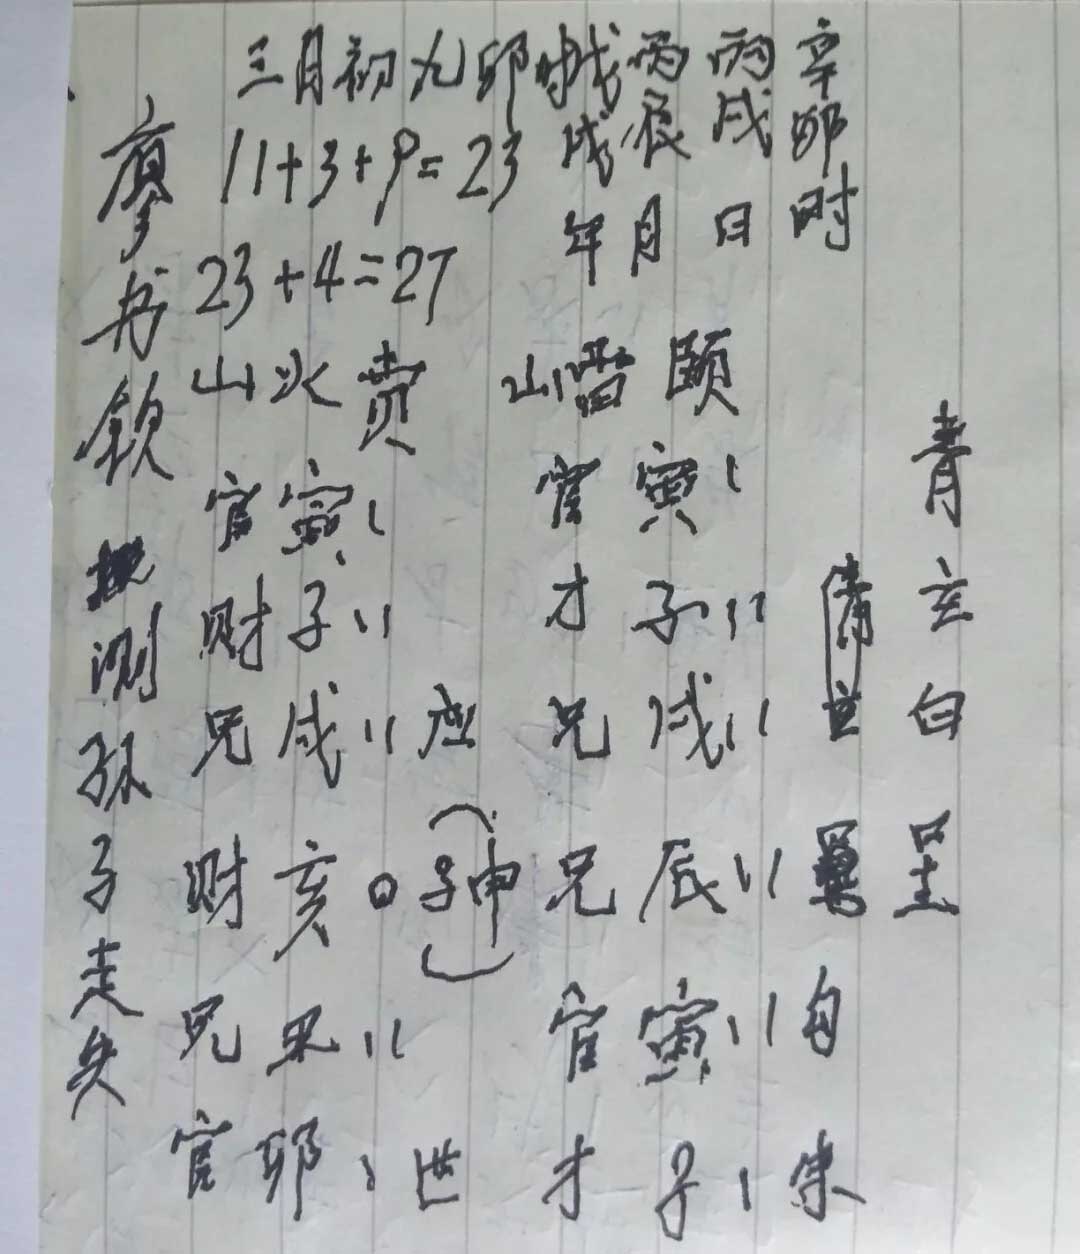 廖书钦测孙子走失
三月初九卯时戊丙丙辛
11+3+9=23戌辰戌卯
年月日时
23+4=27
山火贲 山雷颐
官寅、 官寅、 青
财子、、 才子、、 玄
兄戌、、应 兄戌、、 白
财亥○(子申) 兄辰、、
兄丑、、 官寅、、勾
官卯、世 才子、朱